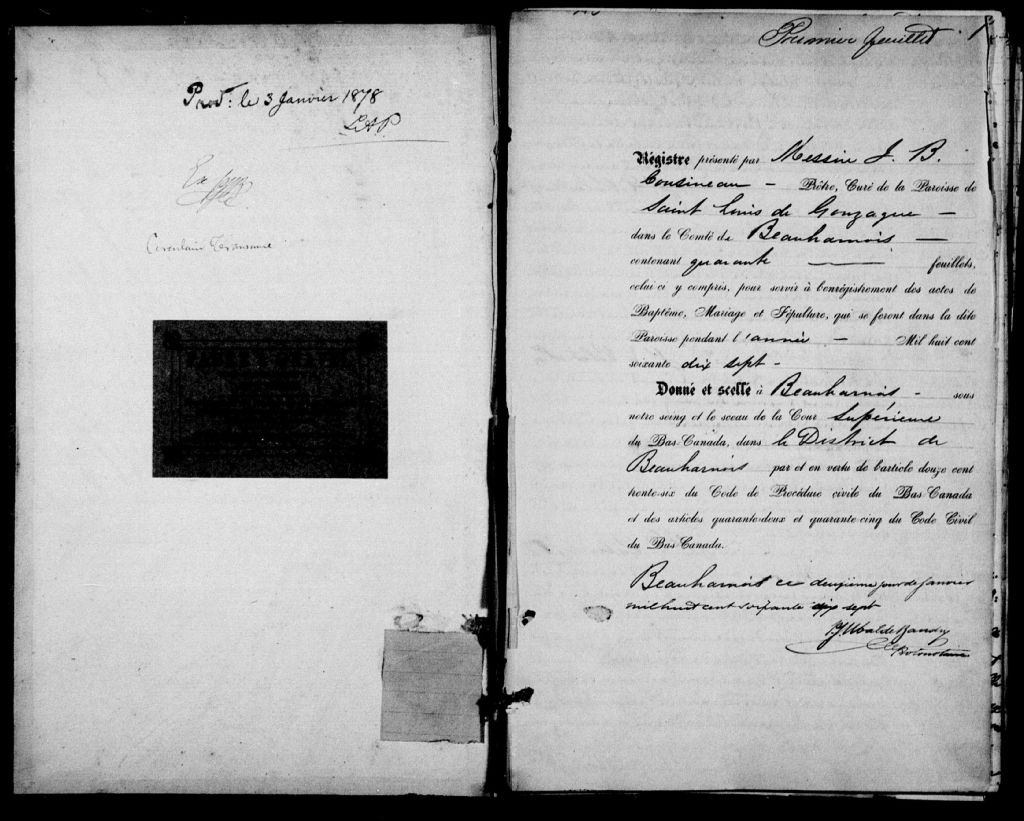 Prod: le 3 Janvier 1878
LAP.
Premier feuillet 1
Régistre présenté par Messire J. B.
Cousineau – Prêtre, Curé de la Paroisse de
Saint Louis de Gonzague –
dans le Comté de Beauharnois –
contenant quarante — feuillets,
celui-ci y compris, pour servir à l'enrégistrement des actes de
Baptême, Mariage et Sépulture, qui se feront dans la dite
Paroisse pendant l'année – Mil huit cent
soixante dix sept –
Donné et scellé à Beauharnois – sous
notre seing et le sceau de la Cour Supérieure
du Bas-Canada, dans le District de
Beauharnois par et en vertu de l'article douze cent
trente-six du Code de Procédure civile du Bas-Canada
et des articles quarante-deux et quarante-cinq du Code Civil
du Bas-Canada.
Beauharnois ce deuxième jour de Janvier
mil huit cent soixante dix sept
Protonotaire